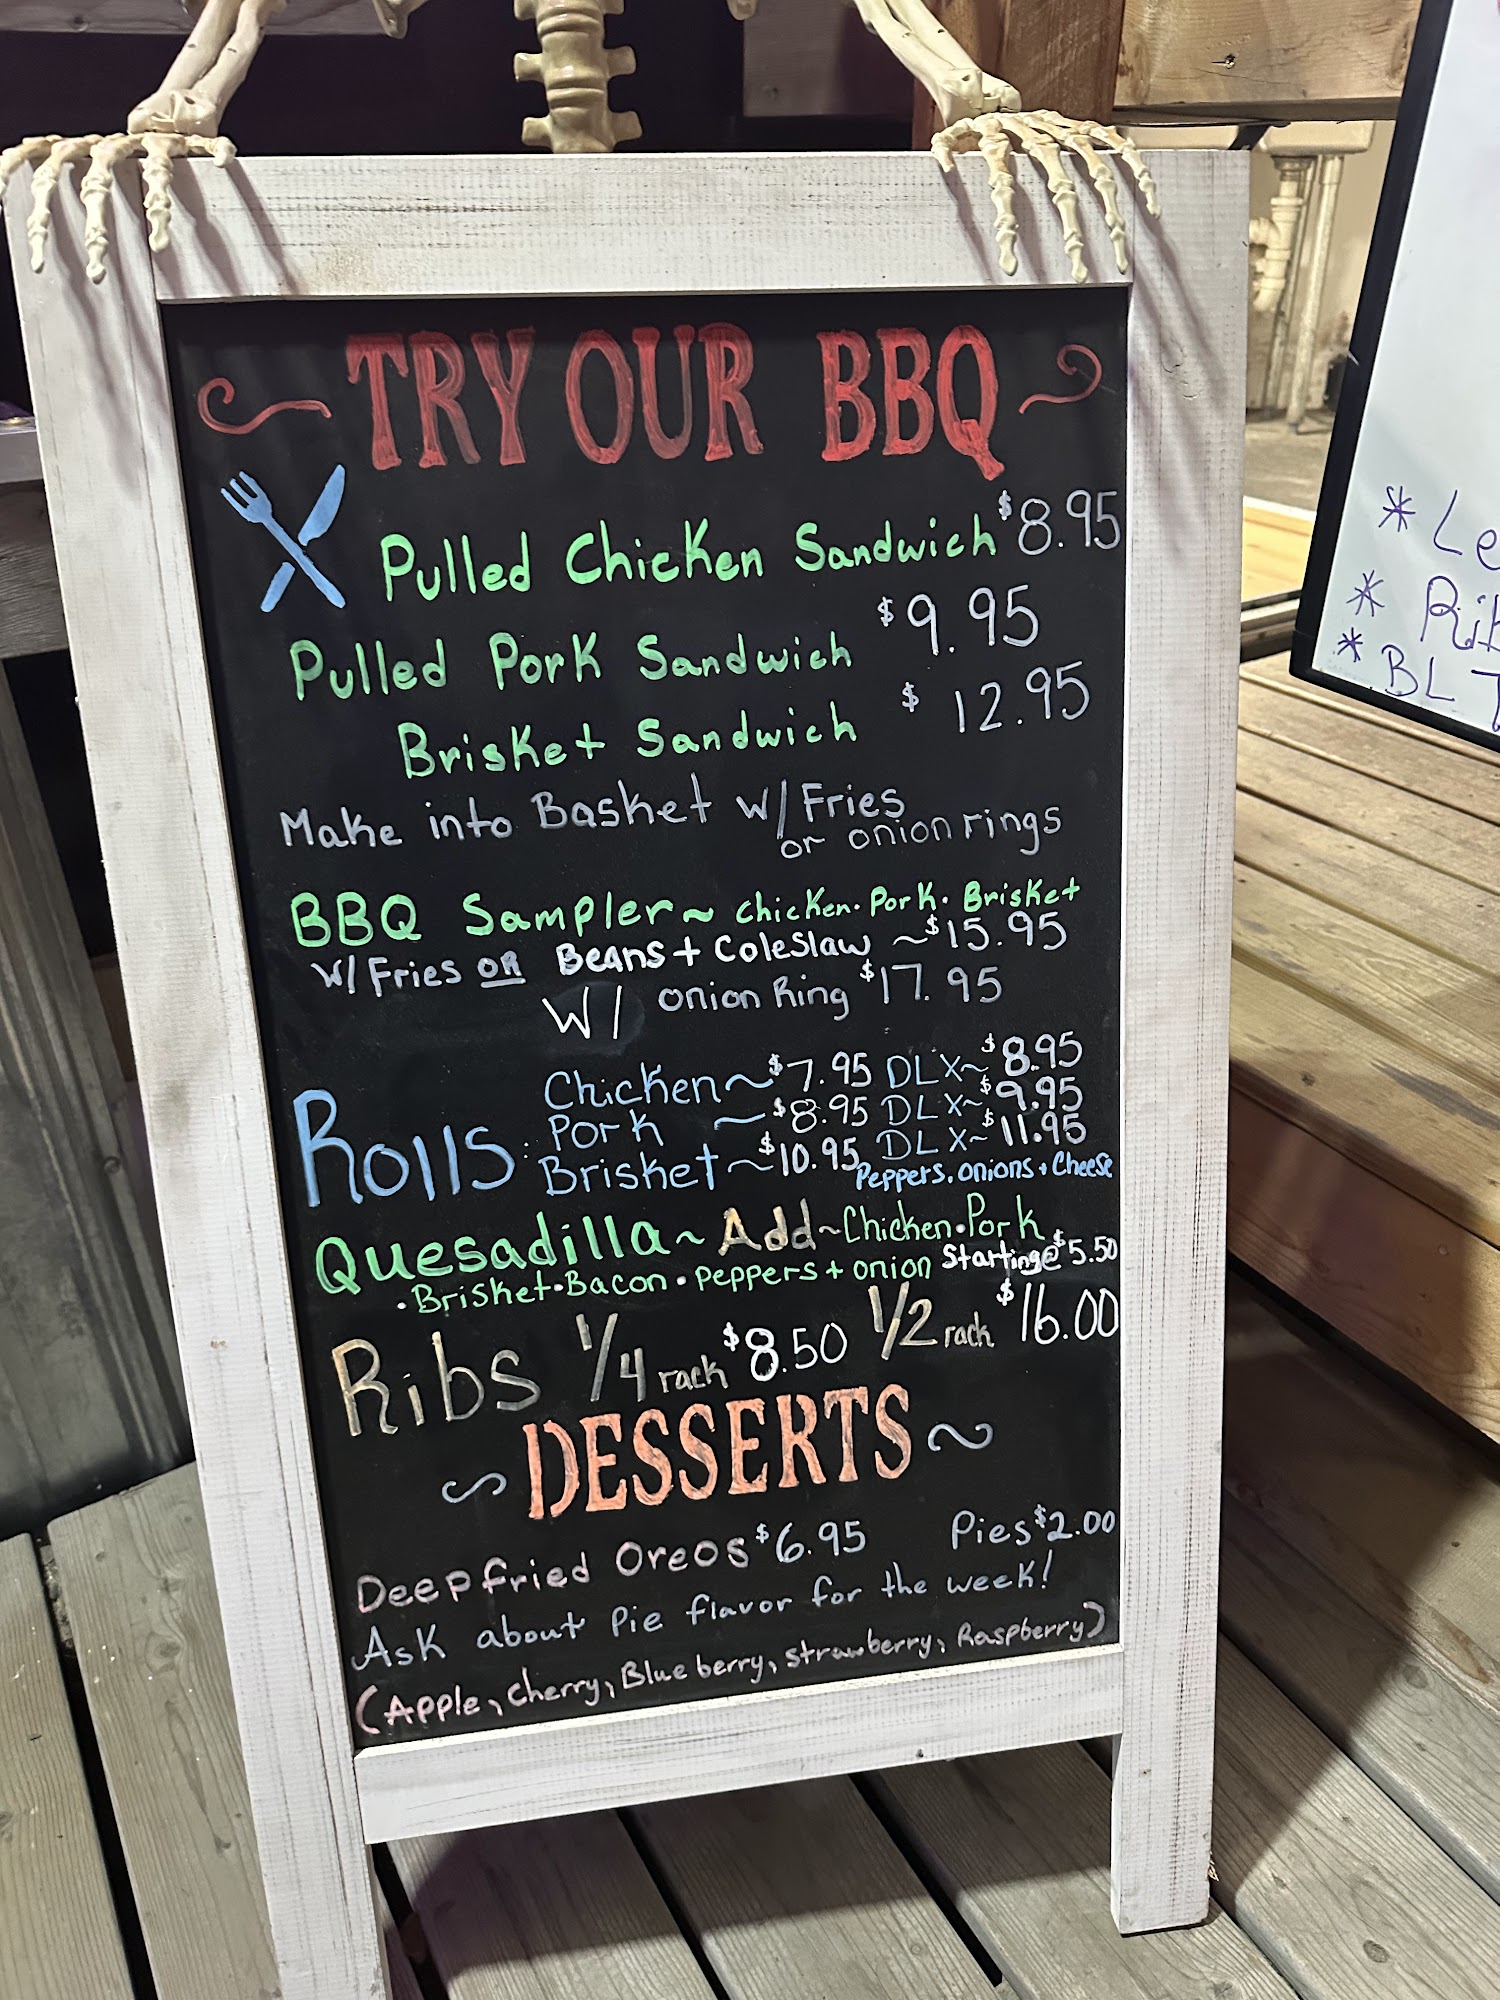 TRY OUR BBQ
Pulled Chicken Sandwich $8.95
Pulled Pork Sandwich $9.95
Brisket Sandwich $12.95
Make into Basket w/ Fries
or onion rings
BBQ Sampler ~ chicken · Pork · Brisket
w/ Fries OR Beans + Coleslaw ~ $15.95
W/ onion Ring $17.95
Rolls:
Chicken ~ $7.95 DLX ~ $8.95
Pork ~ $8.95 DLX ~ $9.95
Brisket ~ $10.95 DLX ~ $11.95
Peppers, onions + Cheese
Quesadilla ~ Add ~ Chicken · Pork
· Brisket · Bacon · peppers + onion Starting @ $5.50
Ribs 1/4 rack $8.50 1/2 rack $16.00
~ DESSERTS ~
Deep fried Oreos $6.95 Pies $2.00
Ask about Pie flavor for the week!
(Apple, Cherry, Blueberry, strawberry, Raspberry)
* Le
* Rib
* BL T